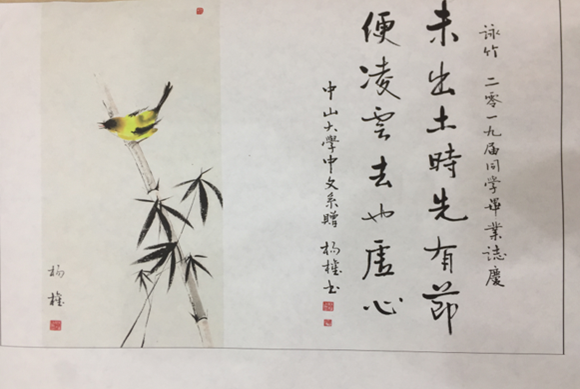 詠竹 二零一九届同学畢業誌慶
未出土時先有節
便凌雲去也虛心
中山大學中文系贈 楊權书
楊權